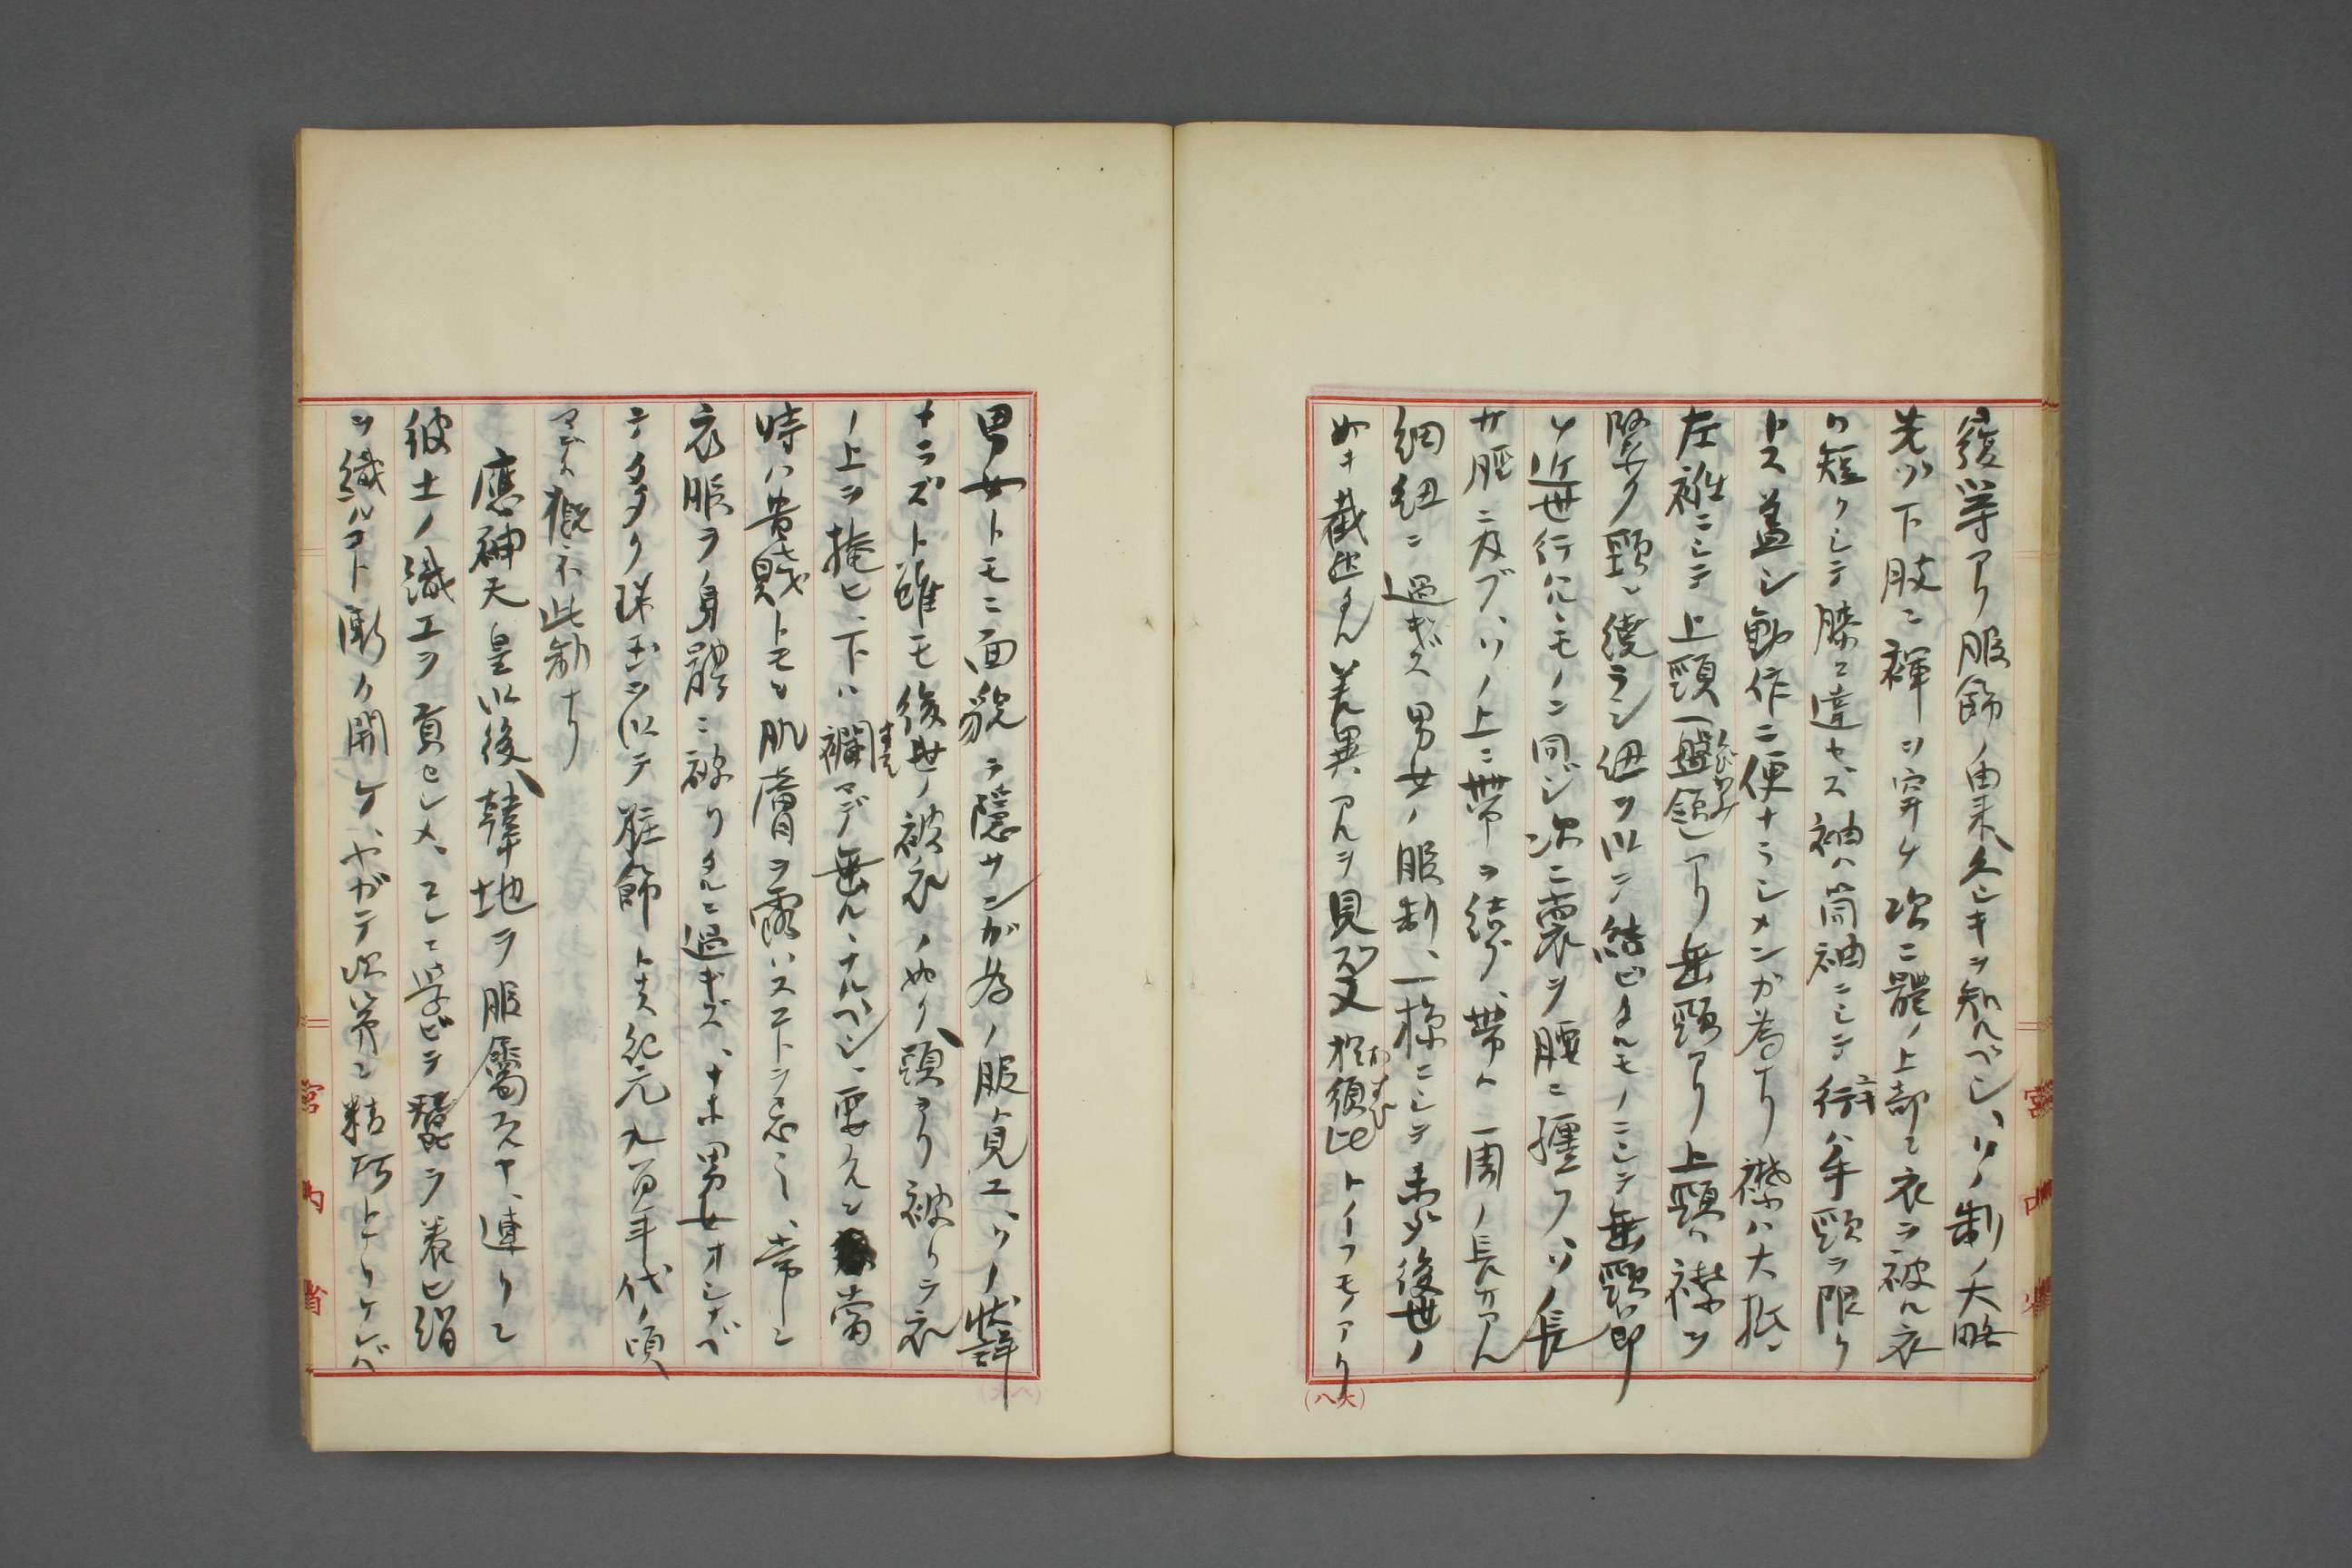 履等アリ服飾ノ由来久シキヲ知ルベシ、ソノ制ノ大略
先ヅ下肢ニ褌ヲ穿ケ次ニ體ノ上部ニ衣ヲ被ル衣
ハ短クシテ膝ニ達セズ袖ハ筒袖ニシテ裄ハ手頸ヲ限リ
トス蓋シ動作ニ便ナラシメンガ為ナリ襟ハ大抵
左衽ニシテ上頸(盤領)アリ垂頸アリ上頸ハ襟ヲ
堅ク頸ニ繞ラシ紐ヲ以テ結ビタルモノニシテ垂頸ハ即
チ近世行ハルヽモノニ同ジ次ニ裳ヲ腰ニ纒フ、ソノ長
サ脛ニ及ブ、ソノ上ニ帯ヲ結ブ、帯ハ一周ノ長サアル
細紐ニ過ギズ男女ノ服制、一様ニシテ未ダ後世ノ
如キ截然タル差異アルヲ見ズ又於須比トイフモノアリ
おすひ
(八大)
男女トモニ面貌ヲ隠サンガ為ノ服ト見エ、ソノ状詳
ナラズト雖モ後世ノ被衣ノ如ク、頭ヨリ被リテ衣
ノ上ヲ掩ヒ、下ハ襴マデ垂ルヽナルベシ、要スルニ當
時ハ貴賤トモニ肌膚ヲ露ハスコトヲ忌ミ、常ニ
衣服ヲ身體ニ被リタルニ過ギズ、ナホ男女オシナベ
テタヾク珠玉ヲ以テ粧飾トナス紀元九百年代ノ頃
マデハ概ネ此制ナリ
應神天皇以後、韓地ヲ服屬スルヤ、連リニ
彼土ノ織工ヲ貢セシメ、コレニ学ビテ蠶ヲ養ヒ絹
ヲ織ルコト漸ク開ケ、ヤガテ次第ニ精巧トナリケレバ
宮内省